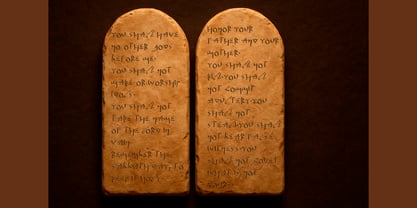 YOU SHALL HAVE
NO OTHER GODS
BEFORE ME.
YOU SHALL NOT
MAKE OR WORSHIP
IDOLS.
YOU SHALL NOT
TAKE THE NAME
OF THE LORD IN
VAIN.
REMEMBER THE
SABBATH DAY, TO
KEEP IT HOLY.
HONOR YOUR
FATHER AND YOUR
MOTHER.
YOU SHALL NOT
KILL. YOU SHALL
NOT COMMIT
ADULTERY. YOU
SHALL NOT
STEAL. YOU SHALL
NOT BEAR FALSE
WITNESS. YOU
SHALL NOT COVET
WHAT IS NOT